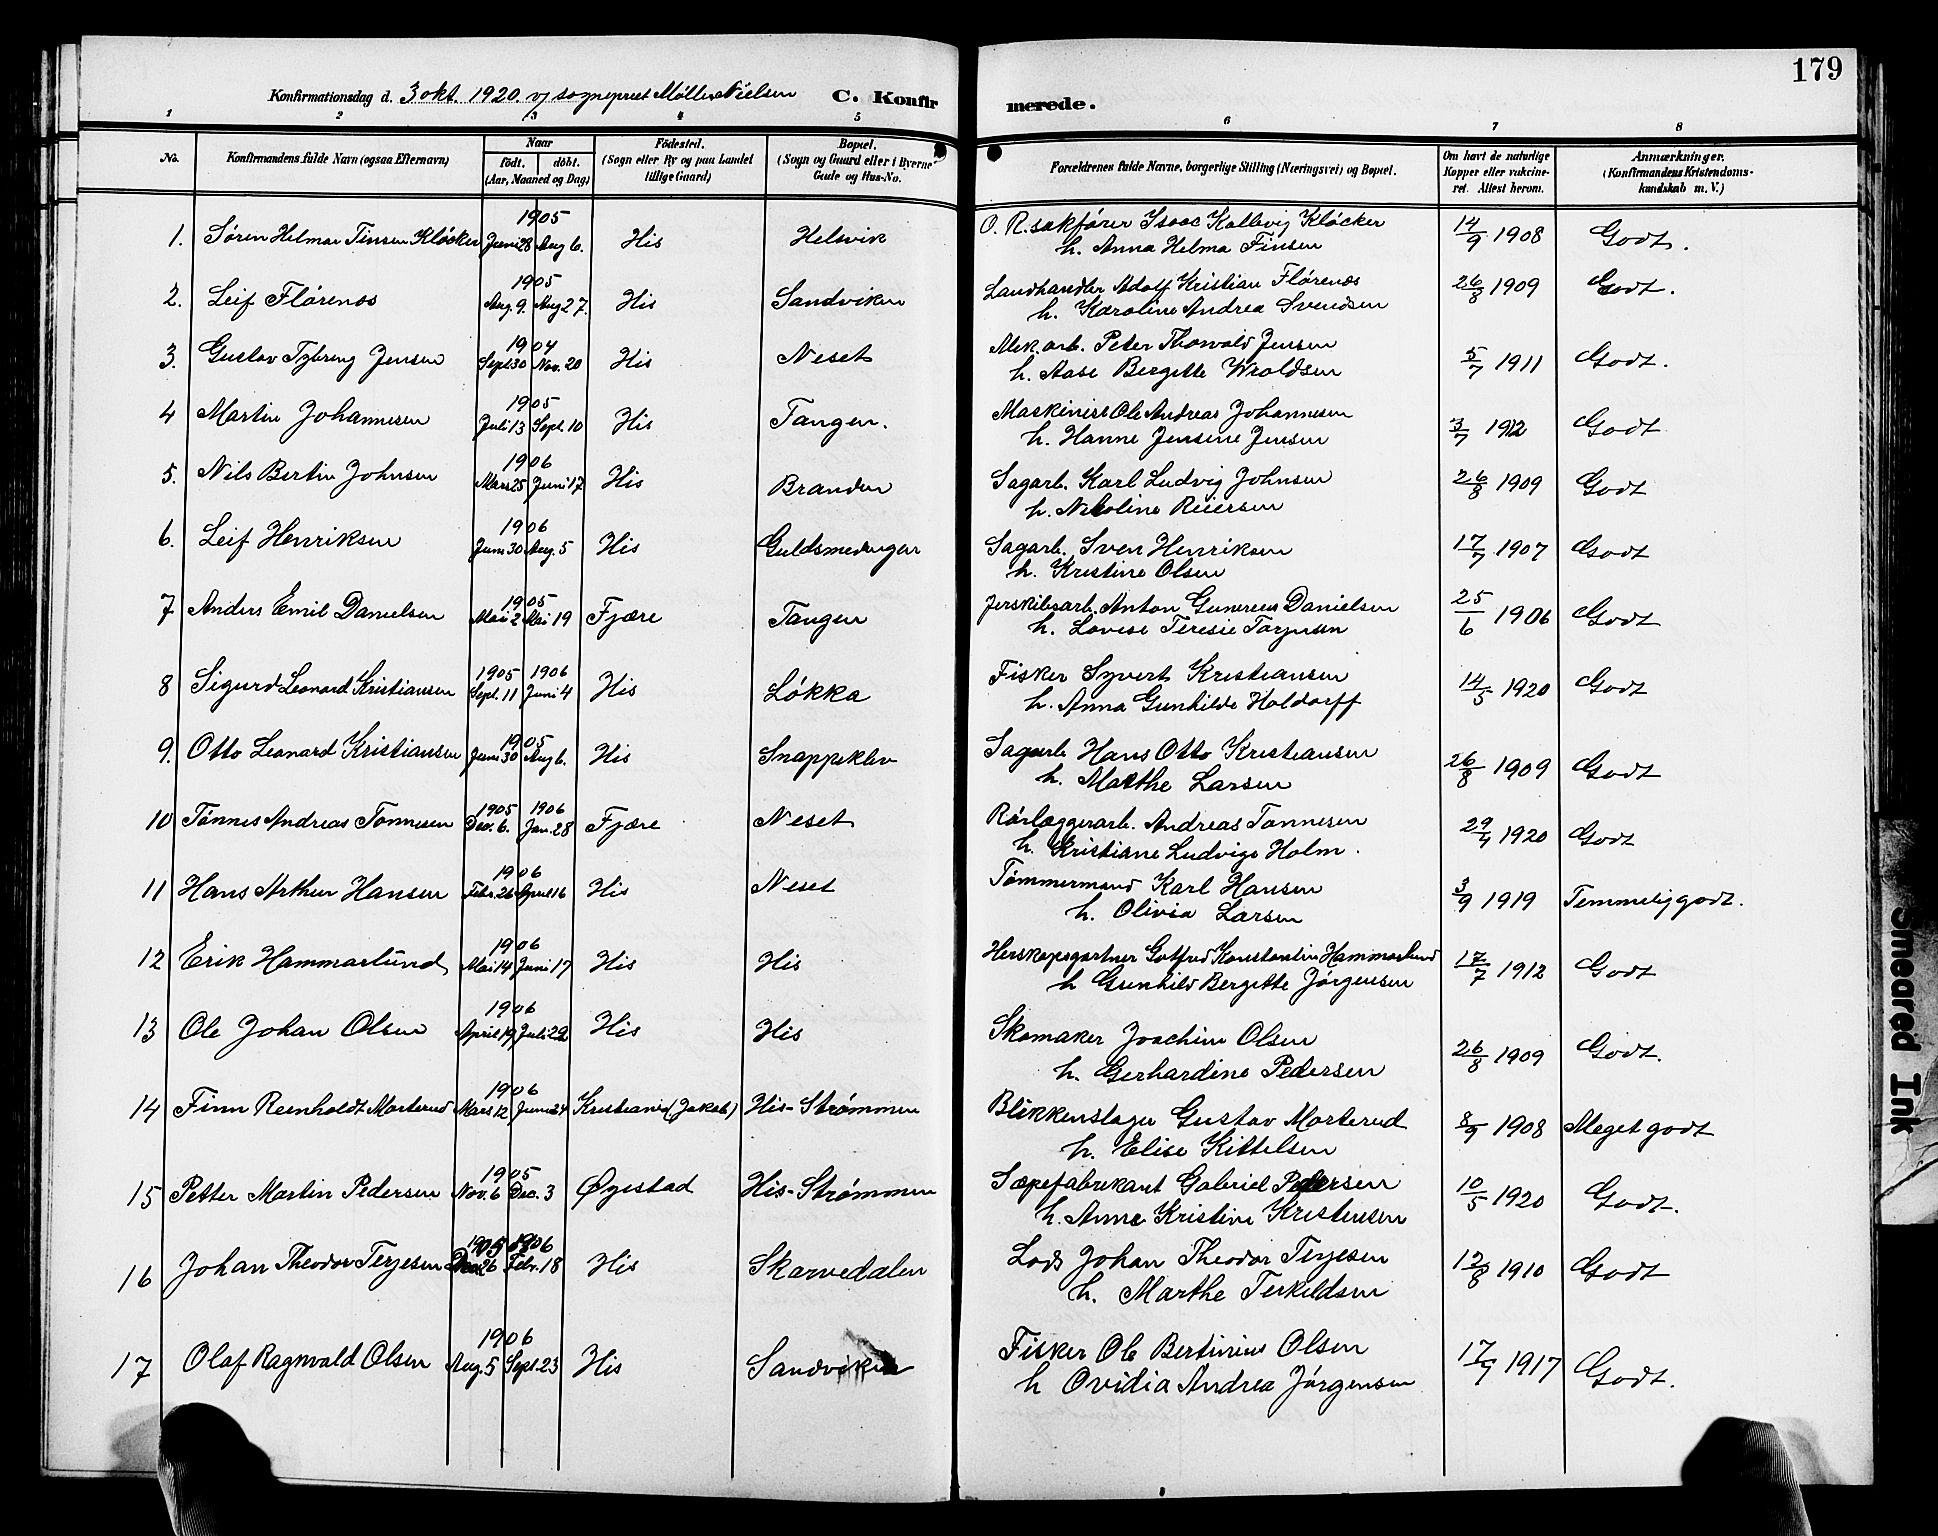 179
Konfirmationsdag d. 3 okt. 1920. v/ sogneprest Møller Nielsen C. Konfirmerede.
1 2 3 4 5 6 7 8
No. Konfirmandens fulde Navn (ogsaa Efternavn) Naar født. døbt. (Aar, Maaned og Dag) Fødested. (Sogn eller By og paa Landet tillige Gaard) Bopæl. (Sogn og Gaard eller i Byerne Gade og Hus-No. Forældrenes fulde Navne, borgerlige Stilling (Næringsvei) og Bopæl. Om havt de naturlige Kopper eller vaksineret. Attest herom. Anmærkninger. (Konfirmandens Kristendomskundskab m. V.)
1905
1. Søren Helmar Finsen Kløcker Juni 28 Aug 6. His Helvik O. R. sakfører Isaac Kallevig Kløcker 14/9 1908 Godt.
h. Anna Helma Finsen
1905
2. Leif Flørenæs Aug. 9. Aug 27. His Sandviken Landhandler Adolf Kristian Flørenæs 26/8 1909 Godt.
h. Karoline Andrea Svendsen
1904
3. Gustav Tybring Jensen Sept 30 Nov. 20 His Neset Mek. arb. Peter Thorvald Jensen 5/7 1911 Godt.
h. Aase Bergette Wroldsen
1905
4 Martin Johannesen Juli 13 Sept. 10 His Tangen. Maskinist Ole Andreas Johannesen 3/7 1912 Godt
h. Hanne Jensine Jensen
1906
5. Nils Bertin Johnsen Mars 25 Juni 17 His Branden Sagarb. Karl Ludvig Johnsen 26/8 1909 Godt
h. Nikoline Reiersen
1906
6. Leif Henriksen Juni 30 Aug. 5 His Guldsmedngen Sagarb. Sven Henriksen 17/7 1907 Godt
h. Kristine Olsen
1905
7 Anders Emil Danielsen Mai 2 Mai 19 Fjære Tangen Anton Gunereus Danielsen 25/6 1906 Godt
h. Lovise Teresie Torjusen
1905 1906
8 Sigurd Leonard Kristiansen Sept. 11 Juni 4 His Løkka Fisker Syvert Kristiansen 14/5 1920 Godt
h. Anna Gunhilde Holdorff
1905
9. Otto Leonard Kristiansen Juni 30 Aug 6. His Snappeklev Sagarb Hans Otto Kristiansen 26/8 1909 Godt
h. Marthe Larsen
1905 1906
10 Tønnes Andreas Tønnesen Dec. 6. Jan. 28 Fjære Neset Rørlæggerarb. Andreas Tønnesen 29/4 1920 Godt
h. Kristiane Ludvige Holm.
1906
11 Hans Arthur Hansen Febr. 26 April 16 His Neset Tømmermand Karl Hansen 3/9 1919 Temmelig godt.
h. Olivia Larsen
1906
12 Erik Hammarlund Mai 14 Juni 17 His His Herskapsgartner Gotfred Konstantin Hammarlund 17/7 1912 Godt
h Gunhild Bergette Jørgensen
1906
13 Ole Johan Olsen April 19 Juli 22 His His Skomaker Joachim Olsen 26/8 1909 Godt.
h. Gerhardine Pedersen
1906
14 Finn Reinholdt Morterud Mars 12 Juni 24 Kristiania (Jakob) His-Strømmen Blikkenslager Gustav Morterud 8/9 1908 Meget godt
h. Elise Kittelsen
1905
15 Petter Martin Pedersen Nov. 6 Dec. 3 Øyestad His-Strømmen Sæpefabrikant Gabriel Pedersen 10/5 1920 Godt.
h. Anne Kristine Kristensen
1905 1906
16 Johan Theodor Terjesen Dec 26 Febr. 18 His Skarvedalen Lods Johan Theodor Terjesen 12/8 1910 Godt
h. Marthe Terkeldsen
1906
17 Olaf Ragnvald Olsen Aug. 5 Sept. 23 His Sandviken Fisker Ole Bertinius Olsen 17/9 1917 Godt.
h Ovidia Andrea Jørgensen
Smeared Ink